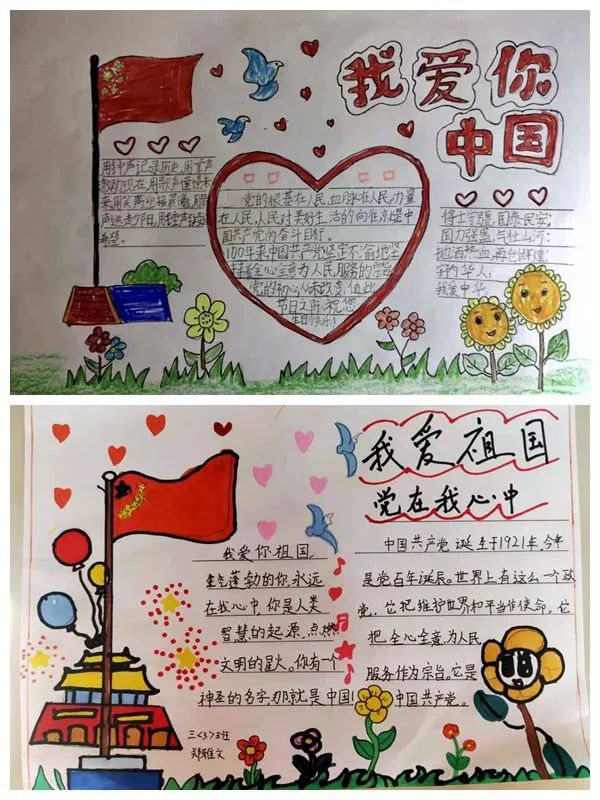 我爱你
中国
用钟声记录历史,用掌声
激励现在,用歌声憧憬未
来,用笑声迎接晨曦,用心
声送走夕阳,用
希望。
党的根基在人民,血脉在人民,力量
在人民,人民对美好生活的向往就是中
国共产党的奋斗目标。
100年来中国共产党坚定不渝地坚
持着全心全意为人民服务的宗旨,
党的初心从未改变,值此
节日之际,祝您
生日快乐!
将士守疆,国泰民安;
国力强盛,气壮山河;
抛洒热血,再创辉煌!
我是华人,
我爱中华。
我爱祖国
党在我心中
我爱你祖国,
生气蓬勃的你,永远
在我心中,你是人类
智慧的起源,点燃
文明的星火。你有一个
神圣的名字,那就是中国!
三<3>班
郑雅文
中国共产党诞生于1921年,今年
是党百年诞辰。世界上有这么一个政
党,它把维护世界和平当作使命,它
把全心全意为人民
服务作为宗旨。它是
中国共产党。